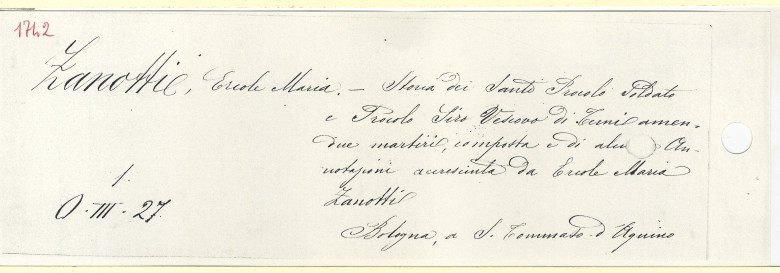 1742
Zanotti, Ercole Maria. — Storia dei Santi Procolo Soldato
e Procolo Siro Vescovo di Terni amen-
due martiri, composta e di alcu An-
notazioni accresciuta da Ercole Maria
Zanotti
1.
O. III. 27.
Bologna, a S. Tommaso d'Aquino